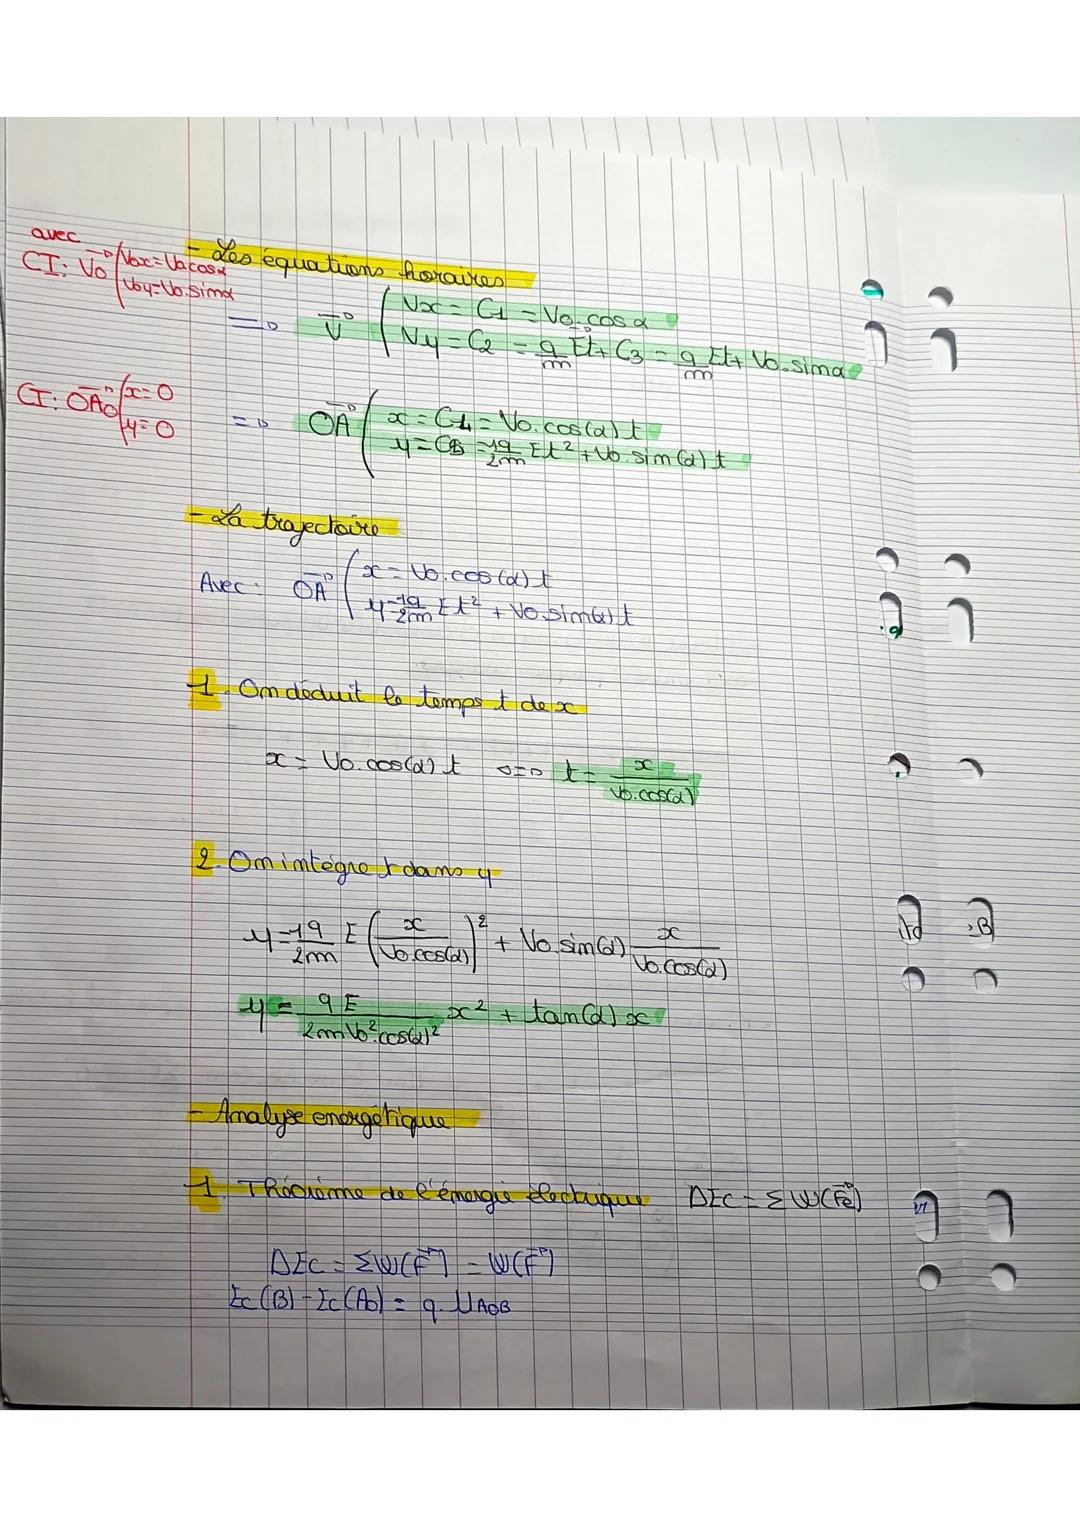 avec
CI: V₀ ( V₀x = V₀cosα
V₀y = V₀.sinα
- Les équations horaires
=> V ( Vx = C1 = V₀.cosα
Vy = C2 = q/m Et + C3 = q/m Et + V₀.sinα
CI: OA₀ ( x = 0
y = 0
=> OA ( x = C4 = V₀.cos(α) t
y = C5 = 1q/2m Et² + V₀.sin(α) t
- La trajectoire
Avec : OA ( x = V₀.cos(α) t
y = 1q/2m Et² + V₀.sin(α) t
1. On déduit le temps t de x
x = V₀.cos(α) t <=> t = x/V₀.cos(α)
2. On intègre t dans y
y = 1q/2m E (x/V₀.cos(α))² + V₀.sin(α) x/V₀.cos(α)
y = qE/2mV₀².cos(α)² x² + tan(α) x
- Analyse énergétique
1. Théorème de l'énergie électrique ΔEc = Σ W(Fe)
ΔEc = ΣW(F) = W(F)
Ec(B) - Ec(A₀) = q. UA₀B